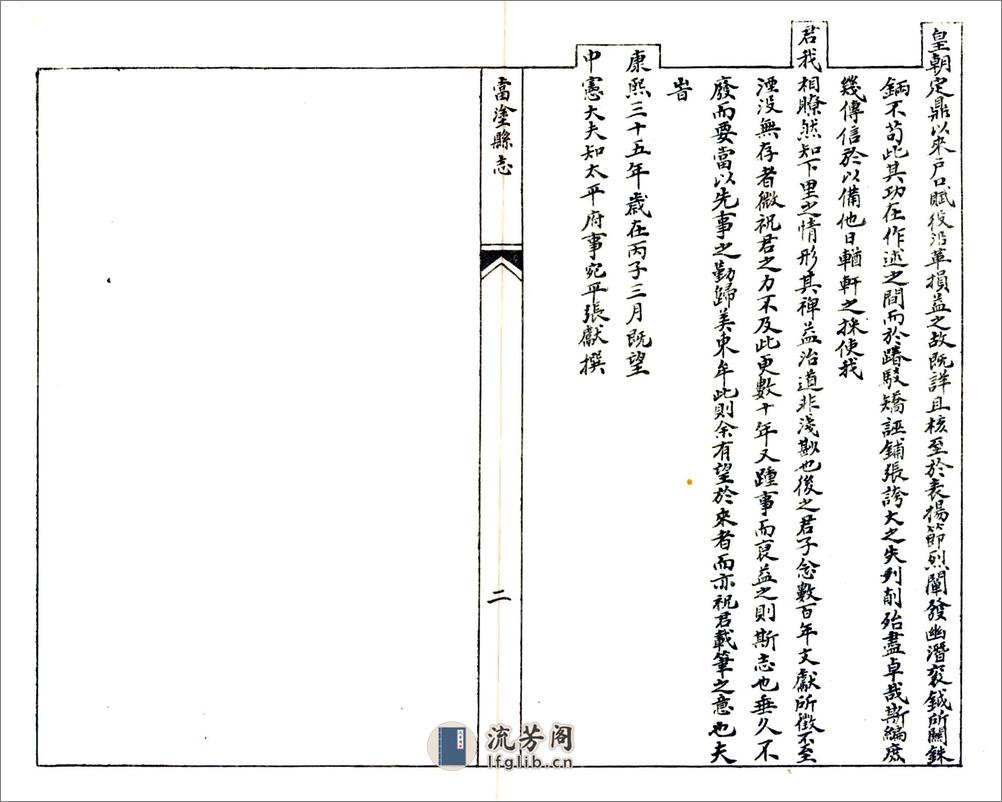 皇朝定鼎以來戶口賦役沿革損益之故既詳且核至於表揚節烈闡發幽潛褒鉞所關銖
鋼不苟此其功在作述之間而於踳駁矯誣鋪張誇大之失刊削殆盡卓哉斯編庶
幾傳信於以備他日輶軒之採使我
君我相瞭然知下里之情形其裨益治道非淺尠也後之君子念數百年文獻所徵不至
湮没無存者微祝君之力不及此更數十年又踵事而裒益之則斯志也垂久不
廢而要當以先事之勤歸美東牟此則余有望於來者而亦祝君載筆之意也夫
旹
康熙三十五年歲在丙子三月既望
中憲大夫知太平府事宛平張獻撰
當塗縣志
二
流芳阁
lfglib.cn